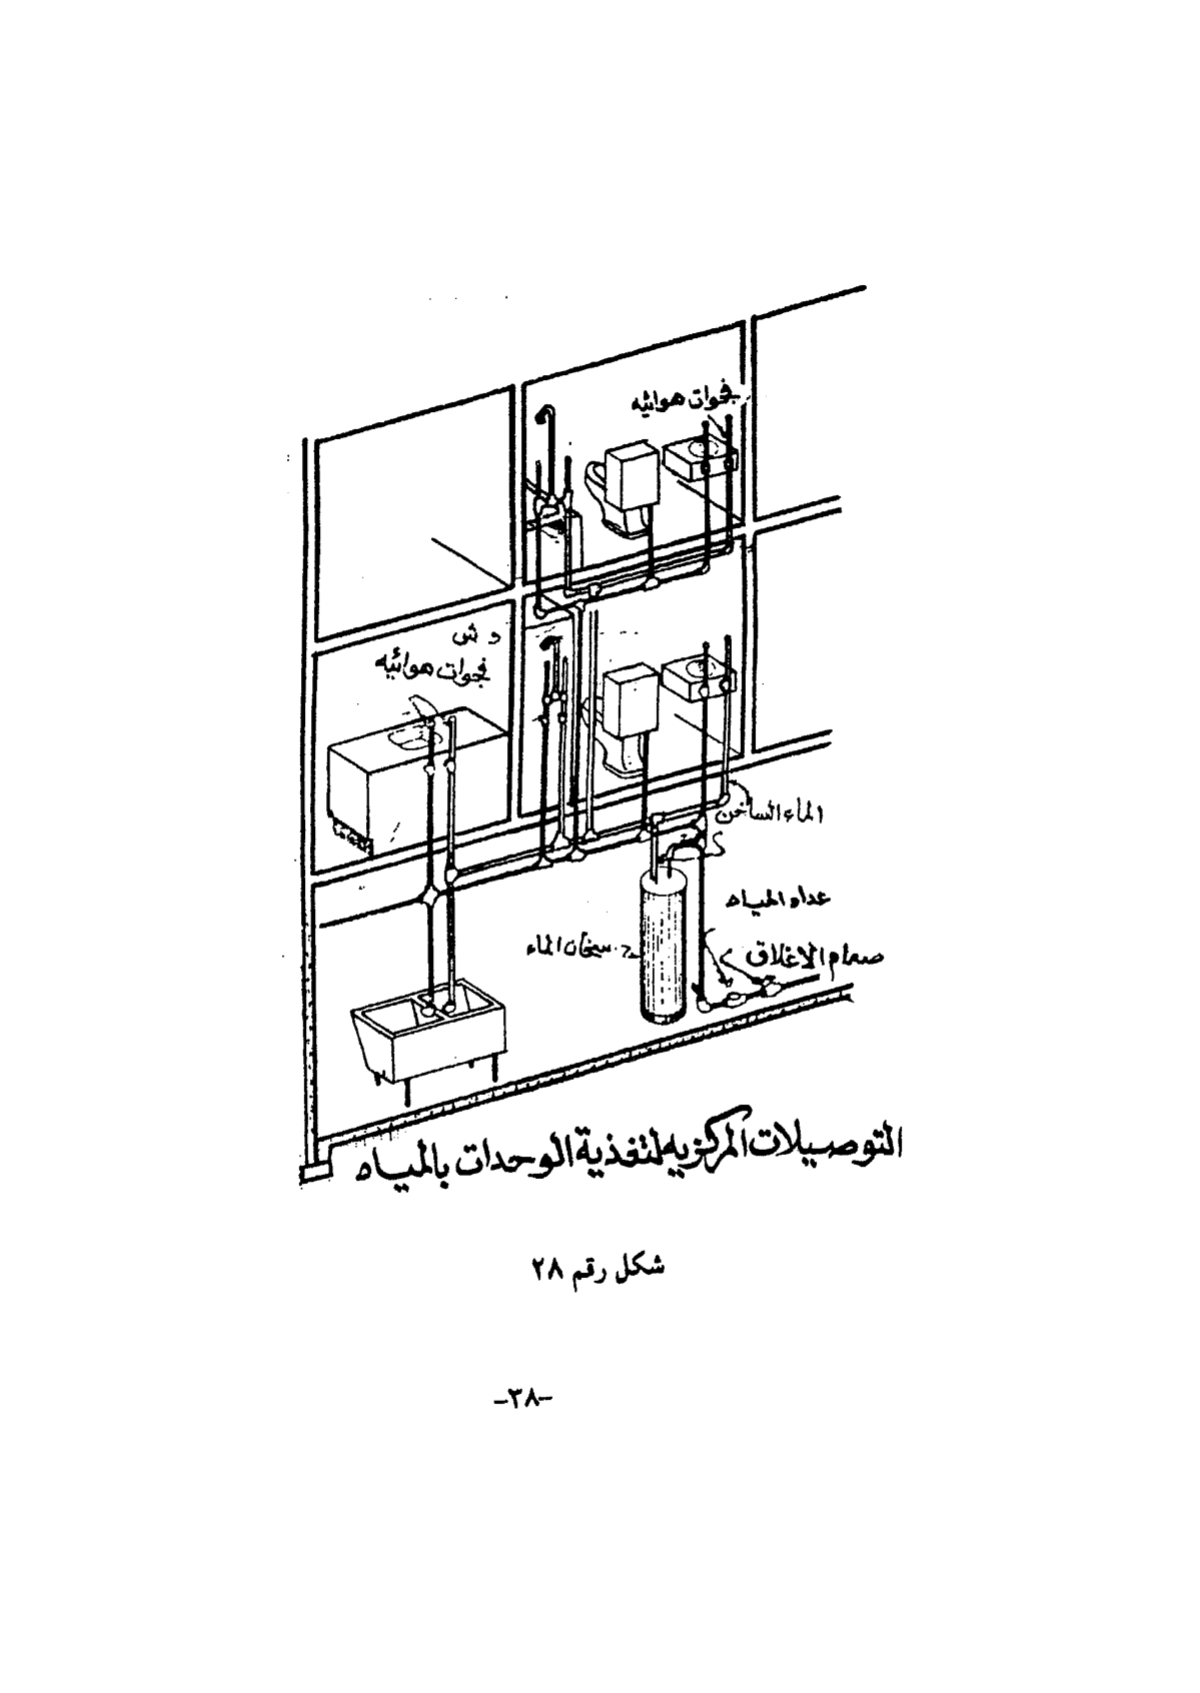 فجوات هوائيه
دش
فجوات هوائيه
الماء الساخن
عداد المياه
سخان الماء
صمام الاغلاق
التوصيلات المركزيه لتغذية الوحدات بالمياه
شكل رقم ٢٨
-٢٨-